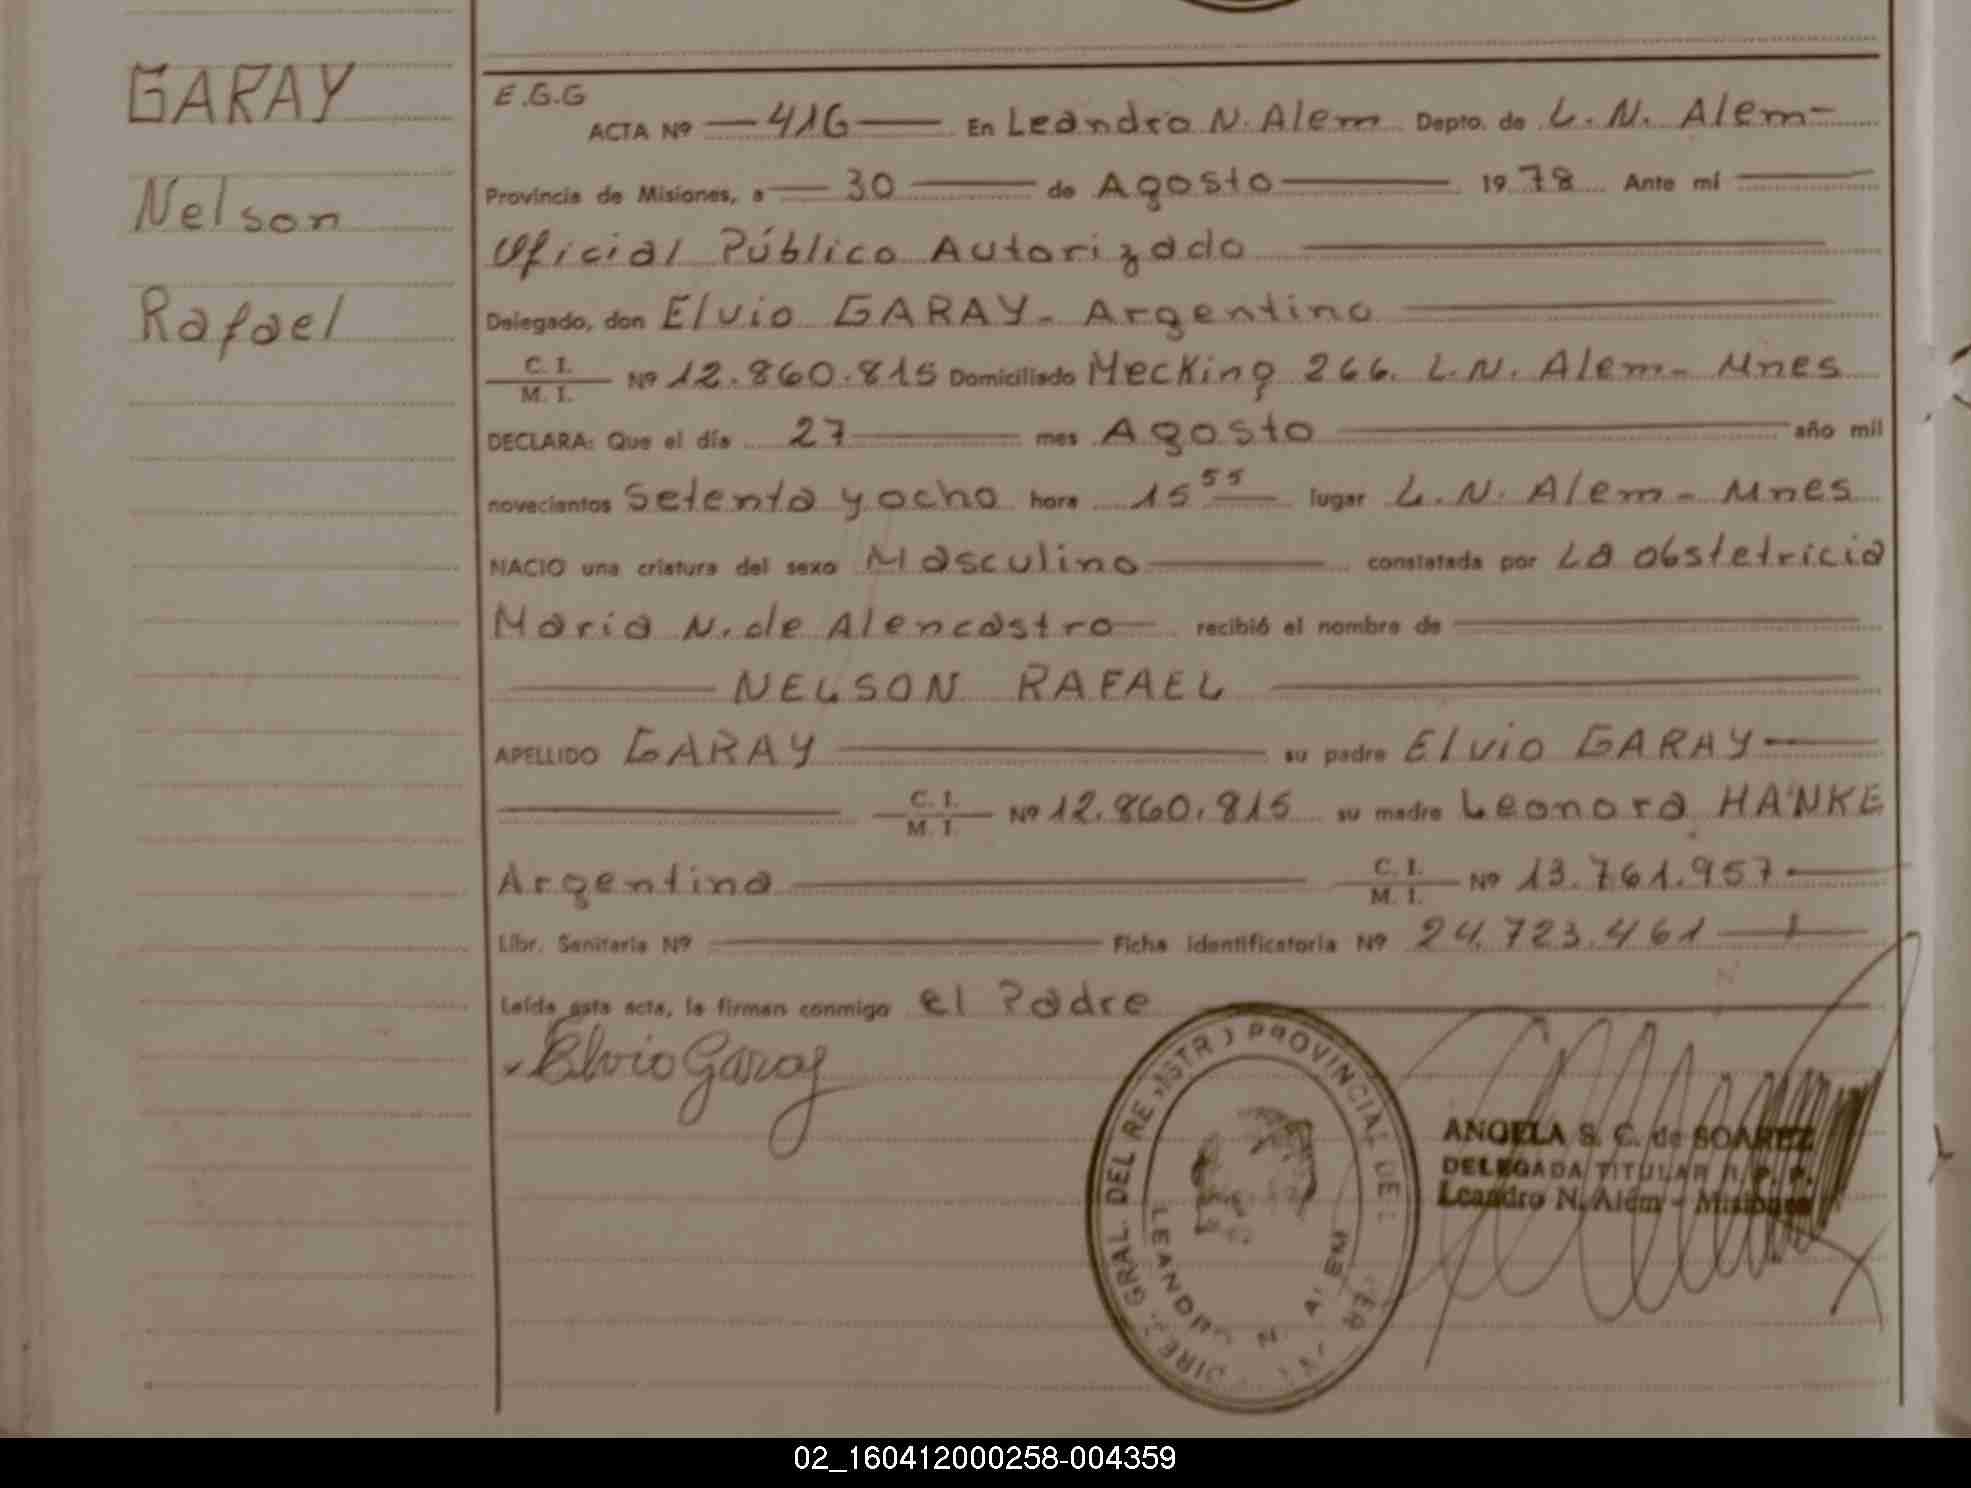 GARAY
Nelson
Rafael
E.G.G
ACTA Nº 416 En Leandro N. Alem Depto. de L. N. Alem
Provincia de Misiones, a 30 de Agosto 1978 Ante mí
Oficial Público Autorizado
Delegado, don Elvio GARAY - Argentino
C. I.
M. I. Nº 12.860.815 Domiciliado Mecking 266. L.N. Alem - Mnes
DECLARA: Que el día 27 mes Agosto año mil
novecientos Setenta y ocho hora 15 55 lugar L. N. Alem - Mnes
NACIO una criatura del sexo Masculino constatada por La obstetricia
Maria N. de Alencastro recibió el nombre de
NELSON RAFAEL
APELLIDO GARAY su padre Elvio GARAY
C. I.
M. I. Nº 12.860.815 su madre Leonora HANKE
Argentina C. I.
M. I. Nº 13.761.957
Libr. Sanitaria Nº Ficha identificatoria Nº 24.723.461
Leída esta acta, la firman conmigo el Padre
Elvio Garay
GRAL DEL PROVINCIAL DE
LEANDRO N.
ANGELA S. C. de SOAREZ
DELEGADA TITULAR R. P. P.
Leandro N. Alem - Misiones
02_160412000258-004359